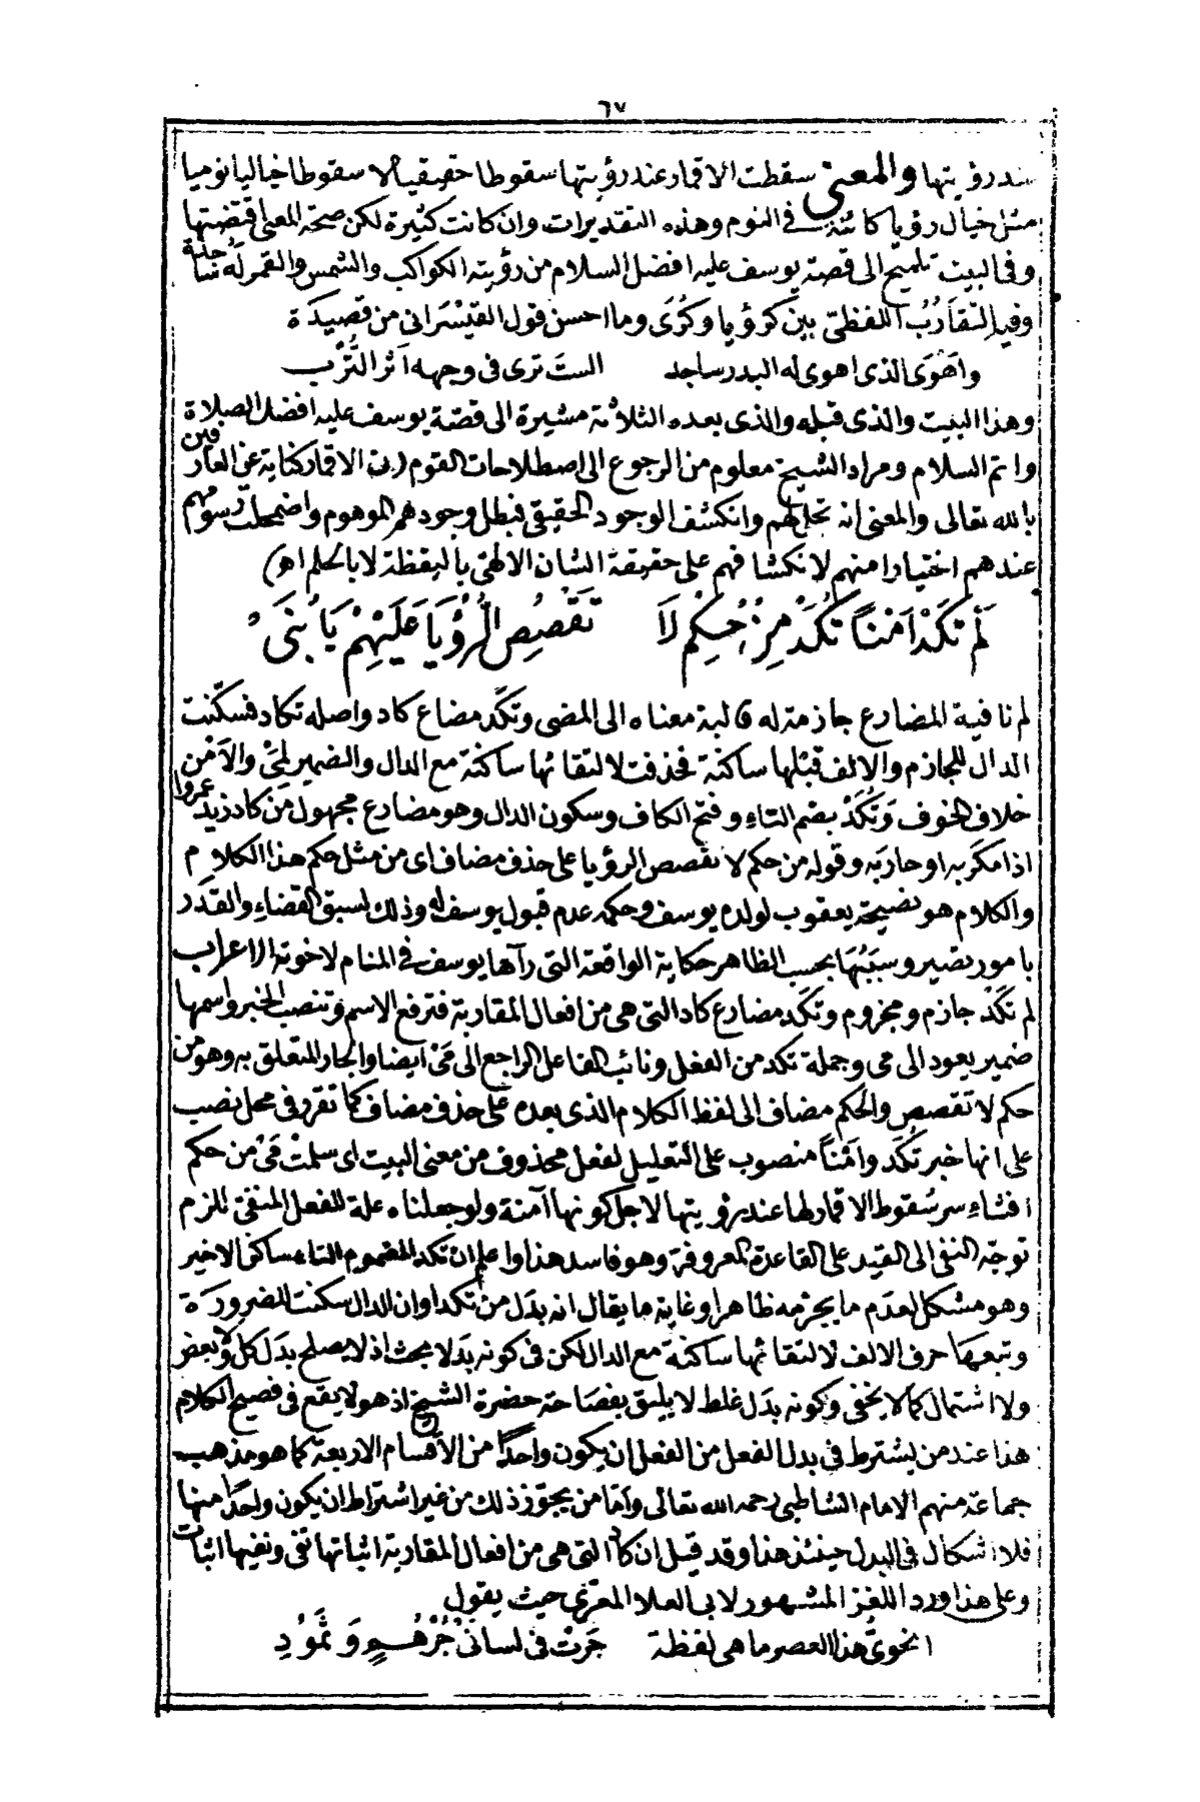 ٦٧
عند رؤيتها والمعنى سقطت الاقمار عند رؤيتها سقوطا حقيقيا لا سقوطا خياليا نوميا
مثل خيال رؤيا كائنة في النوم وهذه التقديرات وان كانت كثيرة لكن صحة المعنى اقتضتها
وفى البيت تلميح الى قصة يوسف عليه افضل السلام من رؤيته الكواكب والشمس والقمر له ساجدة
وفيه التقارُبُ اللفظيّ بين كرؤيا وكرَى وما احسن قول القيْسَرانى من قصيدَة
واهوَى الذى اهوى له البدر ساجد الستَ ترى فى وجهه اثر التُّرْب
وهذا البيت والذى قبله والذى بعده الثلاثة مشيرة الى قصّة يوسف عليه افضل الصلاة
واتمّ السلام ومراد الشيخ معلوم من الرجوع الى اصطلاحات القوم (من الاقمار كناية عن العارفين
بالله تعالى والمعنى انه تجلى لهم وانكشف الوجود الحقيقي فبطل وجودهم الموهوم واضمحلت رسومهم
عندهم اختيارا منهم لانكشافهم على حقيقة الشان الالهى باليقظة لا بالحلم اهـ)
لَمْ تَكَدْ اَمْناً تُكَدْ مِنْ حُكْمِ لَا تَقْصُصِ الرُّؤْيَا عَلَيْهِمْ يَا بُنَىَّ
لم نافية للمضارع جازمة له قالبة معناه الى المضى وتكَد مضارع كاد واصله تكاد فسكّنت
الدال للجازم والالف قبلها ساكنة فحذفت لالتقائها ساكنة مع الدال والضمير لمىْ والاَمْن
خلاف الخوف وَتُكَدْ بضم التاء وفتح الكاف وسكون الدال وهو مضارع مجهول من كاد زيد عمروا
اذا مكَرَ به او حارَبَه وقوله من حكم لا تقصص الرؤيا على حذف مضاف اى من مثل حكم هذا الكلام
والكلام هو نصيحة يعقوب لولده يوسف وحكمه عدم قبول يوسف له وذلك لسبق القضاء والقدَر
بامور تصير وسبَبُهَا بحسب الظاهر حكاية الواقعة التى رآها يوسف في المنام لاخوته الاعراب
لم تكَدْ جازم ومجزوم وتكَد مضارع كاد التى هى من افعال المقاربة فترفع الاسم وتنصب الخبر واسمها
ضمير يعود الى مى وجملة تكد من الفعل ونائب الفاعل الراجع الى مىْ ايضا والجار المتعلق به وهو من
حكم لا تقصص والحكم مضاف الى لفظ الكلام الذى بعده على حذف مضاف كما تقرر فى محل نصب
على انها خبر تكَد وامْناً منصوب على التعليل لفعل محذوف من معنى البيت اى سلمتْ مىْ من حكم
افشاء سر سُقوط الاقمار لها عند رؤيتها لاجل كونها آمنة ولو جعلناه علة للفعل المنفىّ للزم
توجّه النفى الى القيد على القاعدة المعروفة وهو فاسد هذا واعلم ان تكد المضموم التاء ساكن الاخير
وهو مشكل لعدَم ما يجزمه ظاهرا وغاية ما يقال انه بدَل من تكد او ان الدال سكنت للضرورَة
وتبعهَا حرف الالف لالتقائها ساكنة مع الدال لكن فى كونه بَدلا بحث اذ لا يصلح بدَل كل ولا بعض
ولا اشتمال كما لا يخفى وكونه بدَل غلط لا يليق بفصَاحة حضرة الشيخ اذ هو لا يقع فى فصيح الكلام
هذا عند من يشترط فى بدل الفعل من الفعل ان يكون واحداً من الاقسام الاربعة كما هو مذهب
جماعة منهم الامام الشاطبى رحمه الله تعالى وامّا من يجوّز ذلك من غير اشتراط ان يكون واحدًا منها
فلا اشكال في البدل حينئذ هذا وقد قيل ان كاد التى هى من افعال المقاربة اثباتها نفى ونفيها اثبات
وعلى هذا ورد اللغز المشهور لابى العلا المعرّى حيث يقول
انحوىّ هذا العصر ما هى لفظة جَرَتْ فى لسانَىْ جُرْهُمٍ وَثَمُودِ